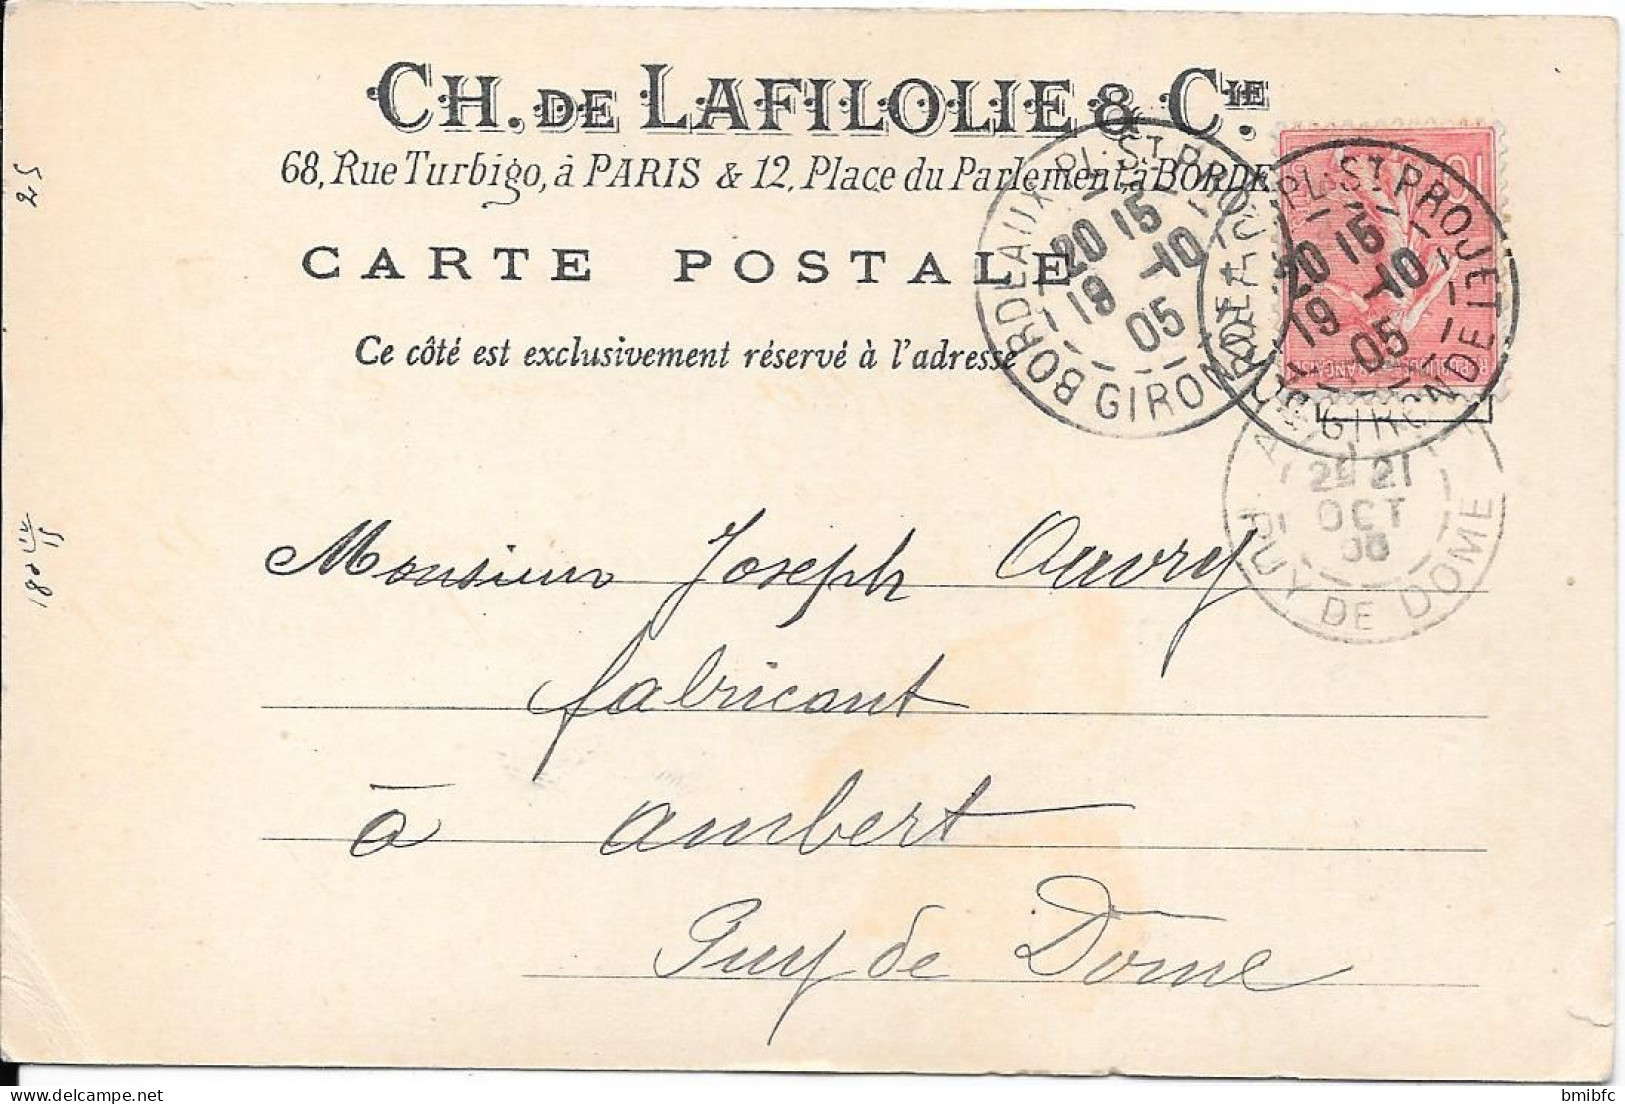 CH. DE LAFILOLIE & CIE.
68, Rue Turbigo, à PARIS & 12, Place du Parlement, à BORDE
CARTE POSTALE
Ce côté est exclusivement réservé à l'adresse
BORDEAUX-PL. ST PROJET
20 15
19 -10
05
GIRONDE
BORDEAUX-PL. ST PROJET
20 15
19 -10
05
GIRONDE
10
21
OCT
PUY DE DOME
Monsieur Joseph Ouvry
fabricant
à Ambert
Puy de Dôme
25
bmibfc